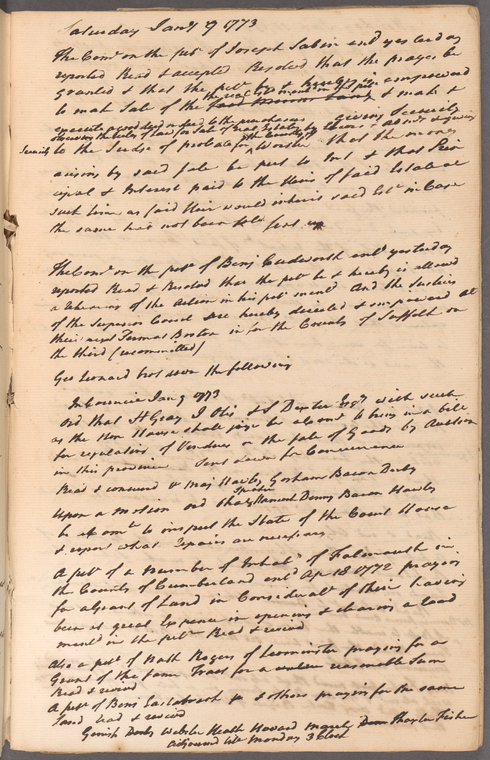 Saturday Jany 9 1773
The Comee on the petn of Joseph Sabin entd yesterday
reported Read & accepted Resolved that the prayer be
granted & that the petr be & hereby is impowered
the real Este mentd in sd petn
to mak Sale of the & mak &
execute a good deed or deeds to the purchasers giving Security
observing the Rules of Law for Sale of Real Estates by Exors & Admrs & giving
Security to the Judge of probate for the County of Worster that the money
arising by said Sale be put to Int & that Prin
cipal & Interest paid to the Heirs of said Estate at
such time as said Heir would inherit said Este in Case
the same had not been sold
The Comee on the petn of Benj Cudworth entd yesterday
reported Read & Resolved that the petr be & hereby is allowed
a rehearing of the Action in his petn mentd And the Justices
of the Superior Court are hereby directed & impowered at
their next Term at Boston in & for the County of Suffolk on
the third (recommitted)
Geo Leonard bro't down the following
In Councie Jany 9 1773
Ord that H Gray J Otis & S Dexter Esqrs with such
as the Hon House shall join be a Comee to bring in a bill
for regulation of Vendues or the sale of Goods by Auction
in this province Sent down for Concurrence
Read & concurd & Maj Hawley Gorham Bacon Derby
Upon a Motion ord that Mr Speaker Denny Bacon Hawley
be a Comee to inspect the State of the Court House
& report what Repairs are necessary
A petn of a Number of Inhabs of Falmouth in
the County of Cumberland entd Apr 18 1772 praying
for a Grant of Land in Consideratn of their having
been at great Expence in opening & clearing a Road
mentd in the petn Read & revivd
Also a petn of Nath Rogers of Leominster praying for a
Grant of the same Tract for a reasonable Sum
Read & revivd
A petn of Benj Easterbrook & others praying for the same
Land read & revivd
Gerrish Derby Webster Heath Howard Thayer Fisher
Adjournd till Monday 3 Clock